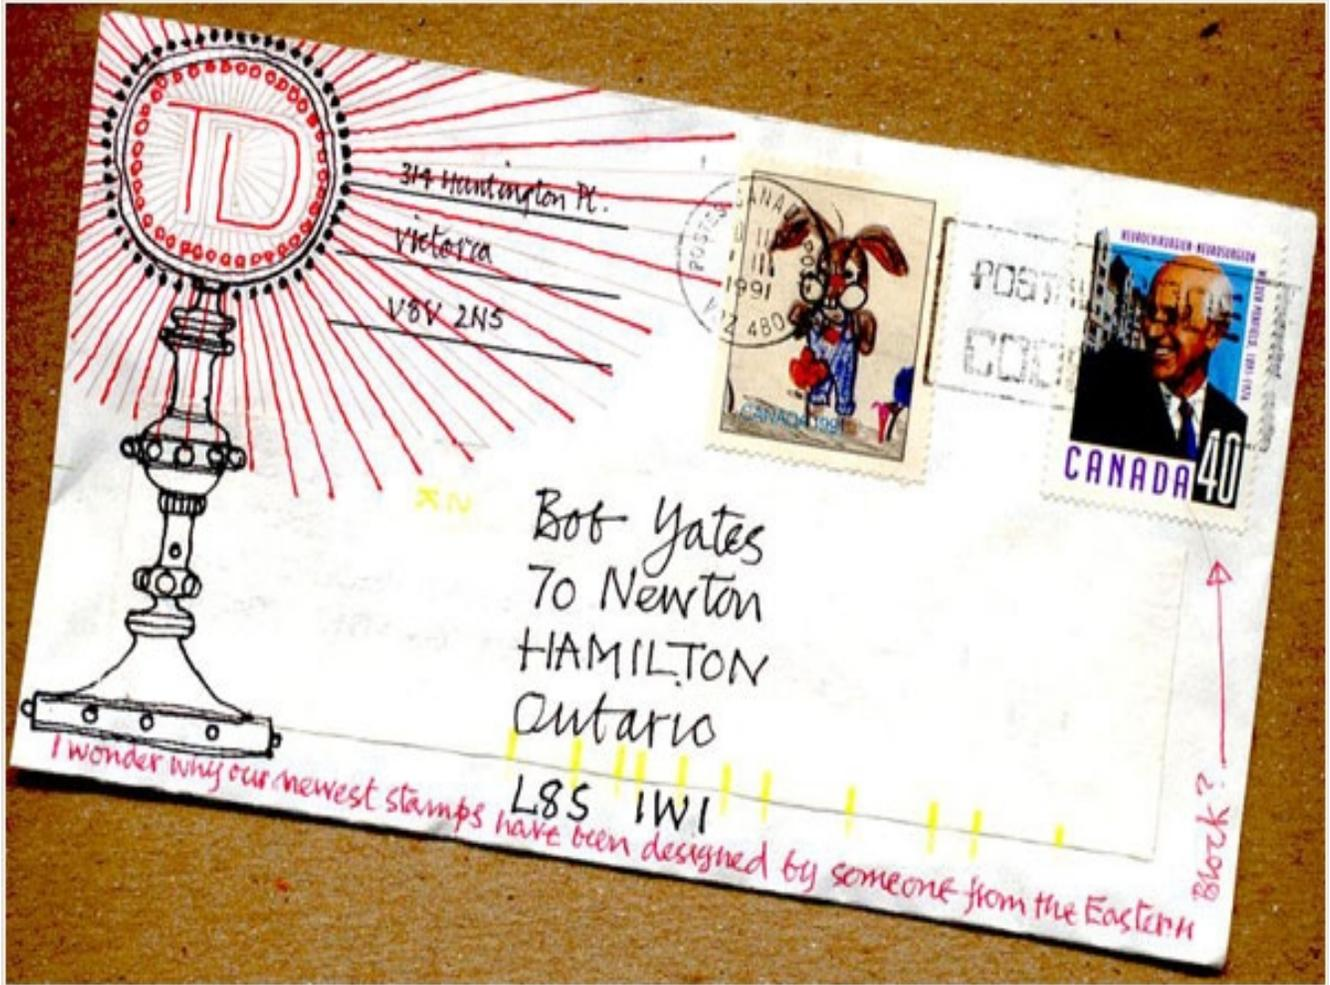 TD
314 Huntington Pl.
Victoria
V8V 2N5
POSTES CANADA
1991
V8Z 4B0
CANADA 1991
POST
COD
NEUROCHIRURGIEN-NEUROSURGEON
WILDER PENFIELD, 1891-1976
CANADA 40
NK
Bob Yates
70 Newton
HAMILTON
Ontario
L8S 1W1
I wonder why our newest stamps have been designed by someone from the Eastern
Block?